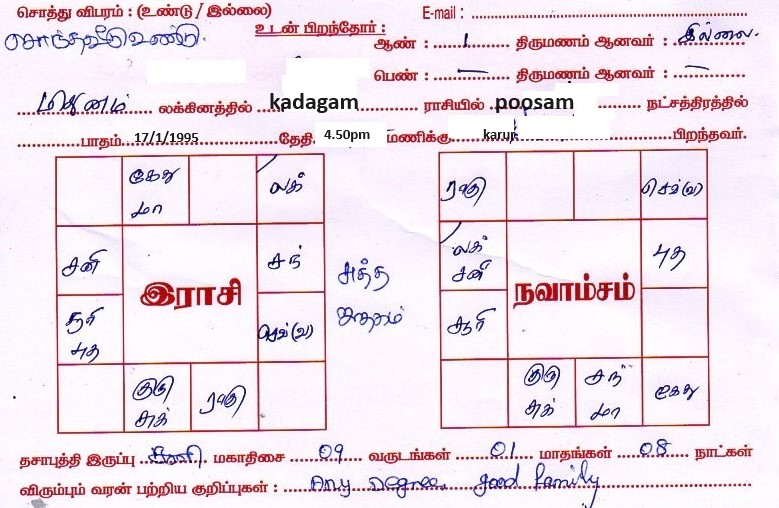 சொத்து விபரம் : (உண்டு / இல்லை) E-mail :
சொந்தவீடு உண்டு. உடன் பிறந்தோர் : ஆண் : 1 திருமணம் ஆனவர் : இல்லை.
பெண் : — திருமணம் ஆனவர் : —
மிதுனம் லக்கினத்தில் kadagam ராசியில் poosam நட்சத்திரத்தில்
பாதம் 17/1/1995 தேதி 4.50pm மணிக்கு பிறந்தவர்.
கேது லக்
மா
சனி சந்
இராசி
சூரி செவ்(வ)
புத
குரு ராகு
சுக்
சுத்த
ஜாதகம்
ராகு செவ்(வ)
லக் புத
சனி
நவாம்சம்
சூரி
குரு சந் கேது
சுக் மா
தசாபுத்தி இருப்பு சனி மகாதிசை 09 வருடங்கள் 01 மாதங்கள் 08 நாட்கள்
விரும்பும் வரன் பற்றிய குறிப்புகள் : Any Degree, good family